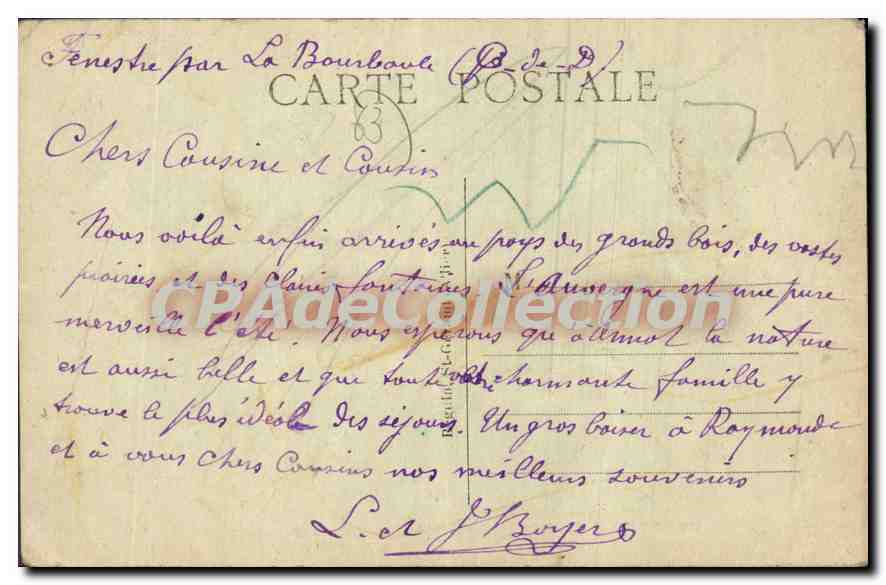 Fenestre par La Bourboule (P-de-D)
CARTE POSTALE
63
Chers Cousine et Cousin
Nous voilà enfin arrivés au pays des grands bois, des vastes
prairies et des claires fontaines. L'Auvergne est une pure
CPAdeCollection.com
merveille l'été. Nous espérons que la nature
est aussi belle et que toute votre charmante famille y
trouve le plus idéal des séjours. Un gros baiser à Raymonde
et à vous chers Cousins nos meilleurs souvenirs
L. et J Boyer